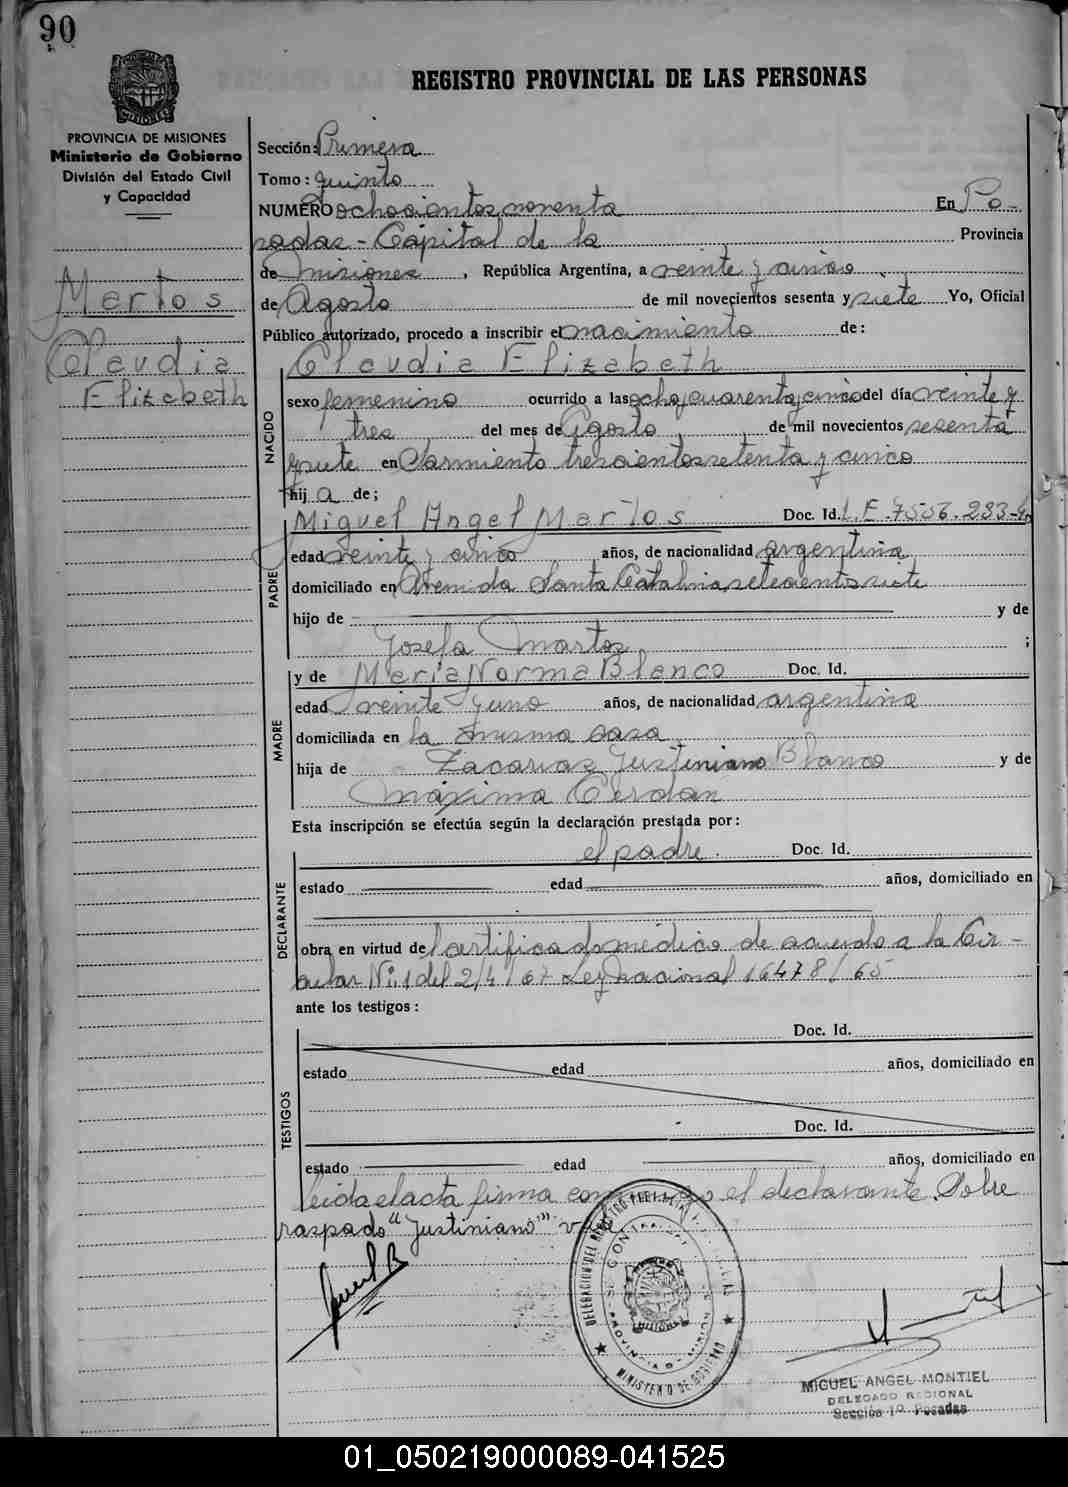 90
REGISTRO PROVINCIAL DE LAS PERSONAS
PROVINCIA DE MISIONES
Ministerio de Gobierno
División del Estado Civil
y Capacidad
Martos
Claudia
Elizabeth
Sección: Primera
Tomo: Quinto
NUMERO ochocientos noventa En Po-
sadas - Capital de la Provincia
de Misiones, República Argentina, a veinte y cinco
de Agosto de mil novecientos sesenta y siete Yo, Oficial
Público autorizado, procedo a inscribir el nacimiento de:
Claudia Elizabeth
NACIDO
sexo femenino ocurrido a las ocho y cuarenta y cinco del día veinte y
tres del mes de Agosto de mil novecientos sesenta
y siete en Sarmiento trescientos setenta y cinco
hij a de;
PADRE
Miguel Angel Martos Doc. Id. L.E. 7.556.283
edad veinte y cinco años, de nacionalidad argentina
domiciliado en Avenida Santa Catalina setecientos siete
hijo de y de
Josefa Martos ;
MADRE
y de Maria Norma Blanco Doc. Id.
edad veinte y uno años, de nacionalidad argentina
domiciliada en la misma casa
hija de Zacarias Justiniano Blanco y de
Máxima Cerdan
Esta inscripción se efectúa según la declaración prestada por:
DECLARANTE
el padre. Doc. Id.
estado edad años, domiciliado en
obra en virtud de certificado médico de acuerdo a la Cir-
cular Nº 1 del 2/4/67 Ley Nacional 16478/65
ante los testigos:
TESTIGOS
Doc. Id.
estado edad años, domiciliado en
Doc. Id.
estado edad años, domiciliado en
leida el acta firma conmigo el declarante. Sobre
raspado "Justiniano" vale
DELEGACION DEL REGISTRO
PROVINCIA DE MISIONES
MISIONES
MINISTERIO DE GOBIERNO
MIGUEL ANGEL MONTIEL
DELEGADO REGIONAL
Sección 1º Posadas
01_050219000089-041525